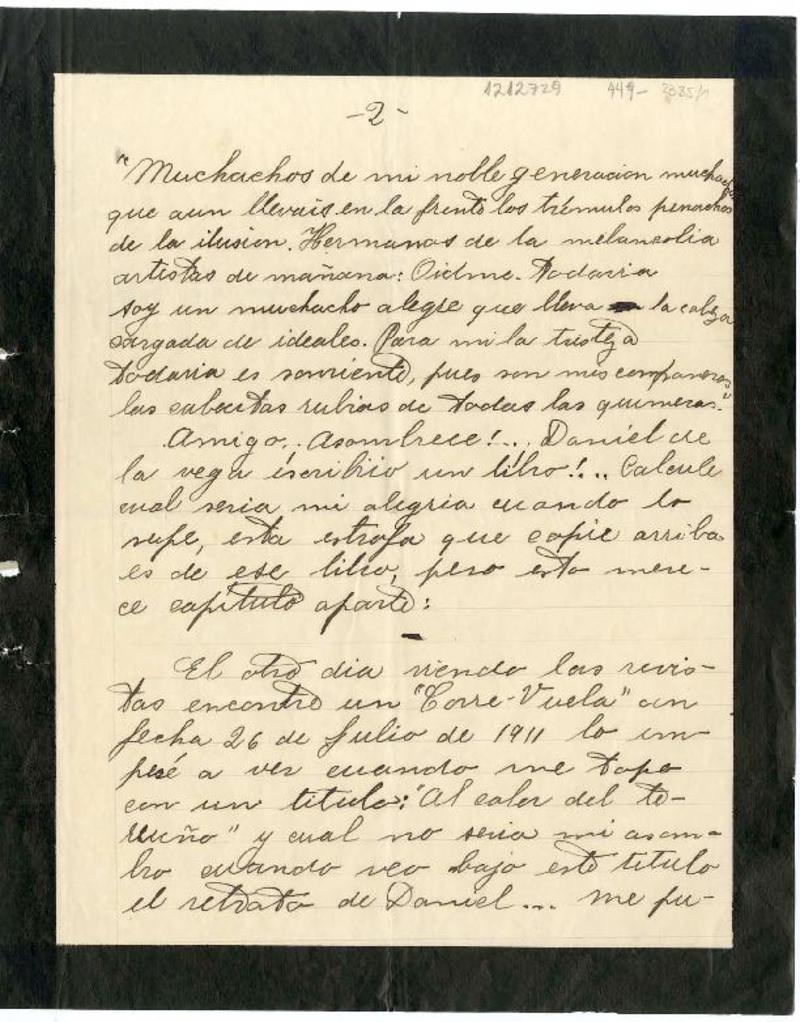 1212729 449- 2385/1
-2-
"Muchachos de mi noble generacion muchachos
que aun llevais en la frente los trémulos penachos
de la ilusion. Hermanos de la melancolia
artistas de mañana: Oidme. Todavia
soy un muchacho alegre que lleva la cabeza
cargada de ideales. Para mi la tristeza
todavia es sonriente, pues son mis companeros
las cabecitas rubias de todas las quimeras."
Amigo.. Asombrece!... Daniel de
la vega escribio un libro!... Calcule
cual seria mi alegria cuando lo
supe, esta estrofa que copie arriba
es de ese libro, pero esto mere-
ce capitulo aparte:
El otro dia viendo las revis-
tas encontre un "Corre-Vuela" con
fecha 26 de Julio de 1911 lo em-
pesé a ver cuando me topo
con un titulo: "Al calor del te-
rruño" y cual no seria mi asom-
bro cuando veo bajo este titulo
el retrato de Daniel... me pu-